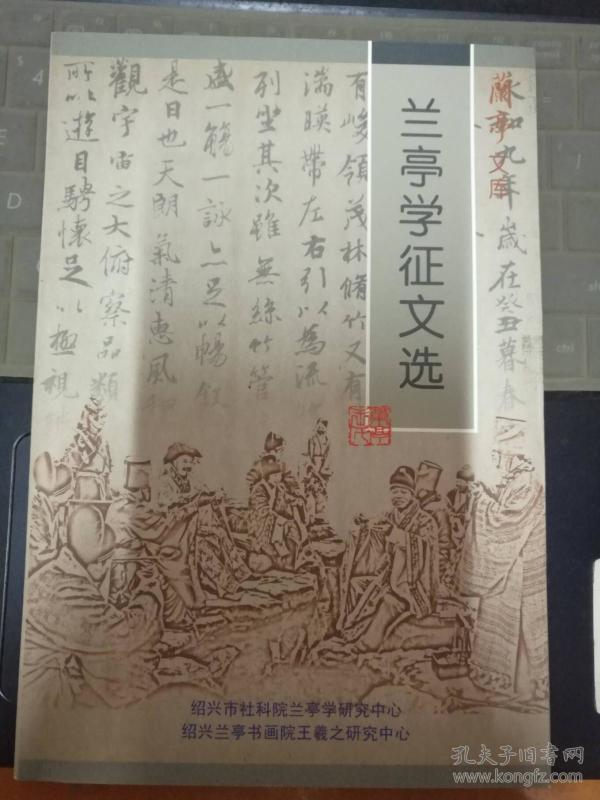 兰亭学征文选
蘭亭文库
永和九年歲在癸丑暮春
有峻領茂林脩竹又有
湍暎帶左右引以為流
列坐其次雖無絲竹管
盛一觴一詠亦足以暢叙
是日也天朗氣清惠風和
觀宇宙之大俯察品類
所以遊目騁懷足以極視
绍兴市社科院兰亭学研究中心
绍兴兰亭书画院王羲之研究中心
孔夫子旧书网
www.kongfz.com